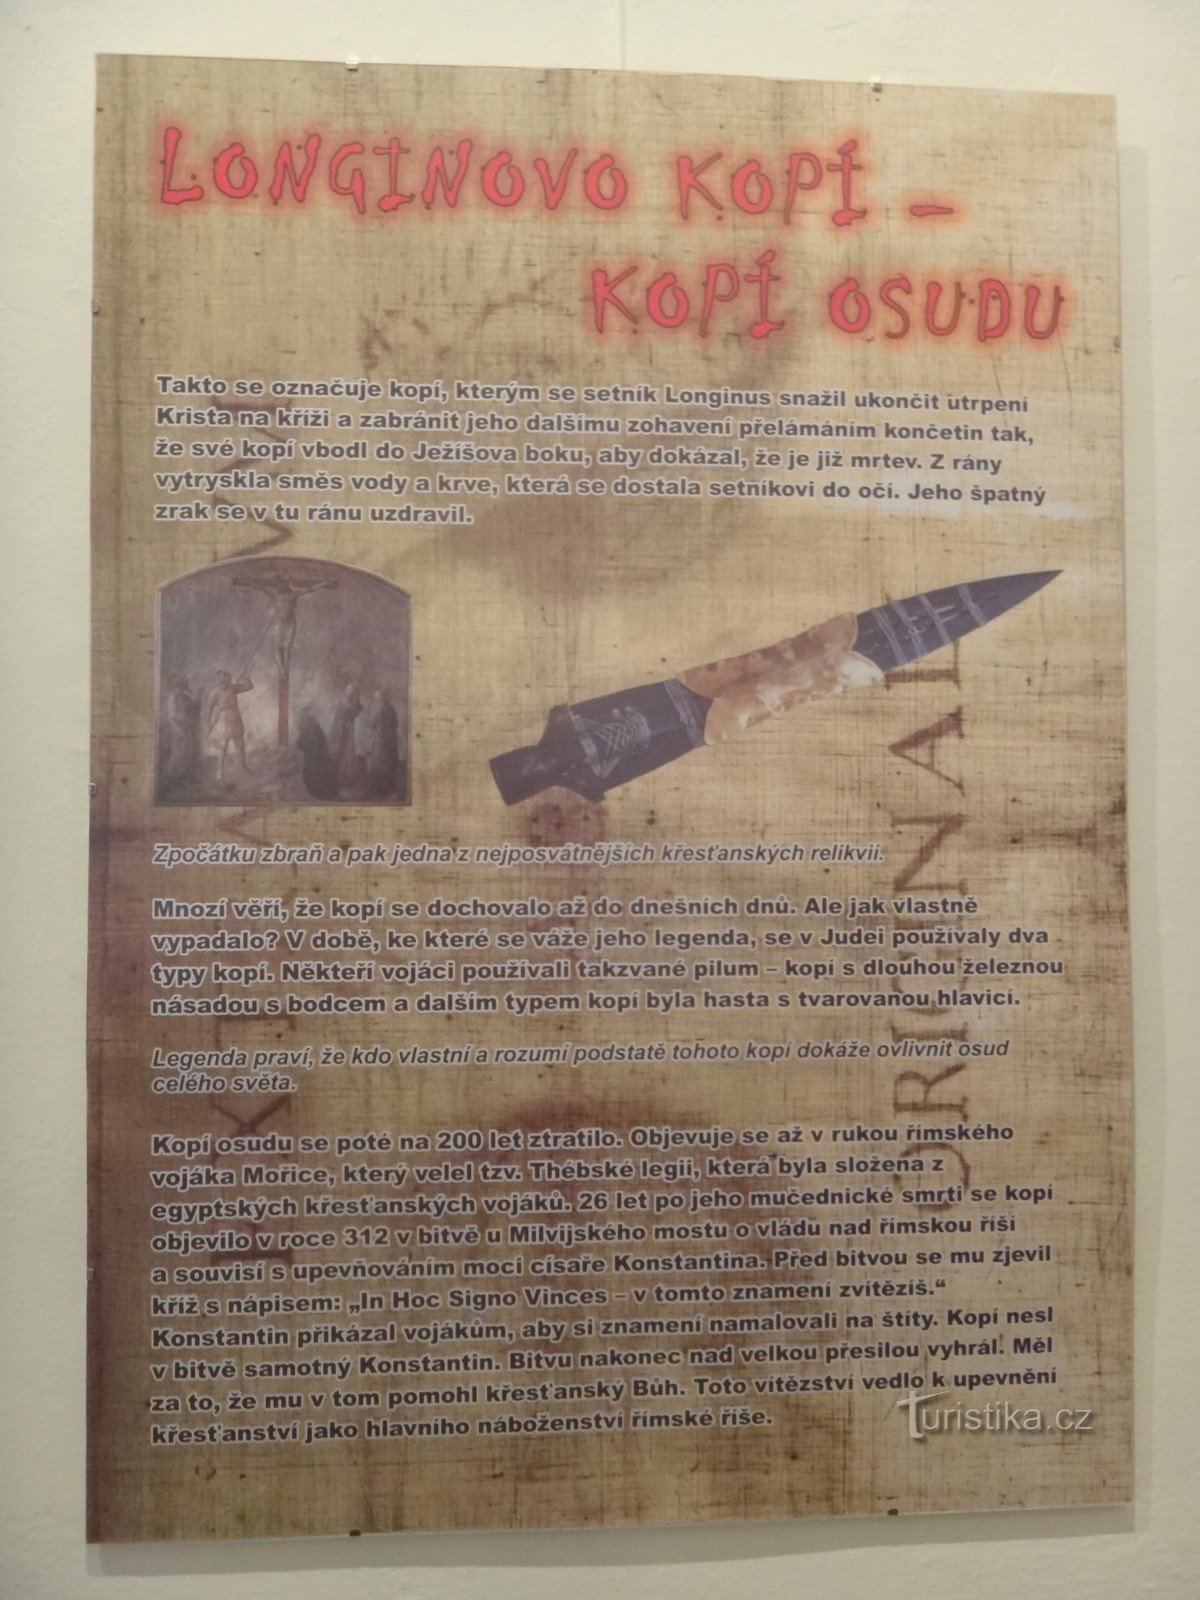 LONGINOVO KOPÍ –
KOPÍ OSUDU
Takto se označuje kopí, kterým se setník Longinus snažil ukončit utrpení
Krista na kříži a zabránit jeho dalšímu zohavení přelámáním končetin tak,
že své kopí vbodl do Ježíšova boku, aby dokázal, že je již mrtev. Z rány
vytryskla směs vody a krve, která se dostala setníkovi do očí. Jeho špatný
zrak se v tu ránu uzdravil.
Zpočátku zbraň a pak jedna z nejposvátnějších křesťanských relikvií.
Mnozí věří, že kopí se dochovalo až do dnešních dnů. Ale jak vlastně
vypadalo? V době, ke které se váže jeho legenda, se v Judei používaly dva
typy kopí. Někteří vojáci používali takzvané pilum – kopí s dlouhou železnou
násadou s bodcem a dalším typem kopí byla hasta s tvarovanou hlavicí.
Legenda praví, že kdo vlastní a rozumí podstatě tohoto kopí dokáže ovlivnit osud
celého světa.
Kopí osudu se poté na 200 let ztratilo. Objevuje se až v rukou římského
vojáka Mořice, který velel tzv. Thébské legii, která byla složena z
egyptských křesťanských vojáků. 26 let po jeho mučednické smrti se kopí
objevilo v roce 312 v bitvě u Milvijského mostu o vládu nad římskou říší
a souvisí s upevňováním moci císaře Konstantina. Před bitvou se mu zjevil
kříž s nápisem: „In Hoc Signo Vinces – v tomto znamení zvítězíš.“
Konstantin přikázal vojákům, aby si znamení namalovali na štíty. Kopí nesl
v bitvě samotný Konstantin. Bitvu nakonec nad velkou přesilou vyhrál. Měl
za to, že mu v tom pomohl křesťanský Bůh. Toto vítězství vedlo k upevnění
křesťanství jako hlavního náboženství římské říše.
Turistika.cz